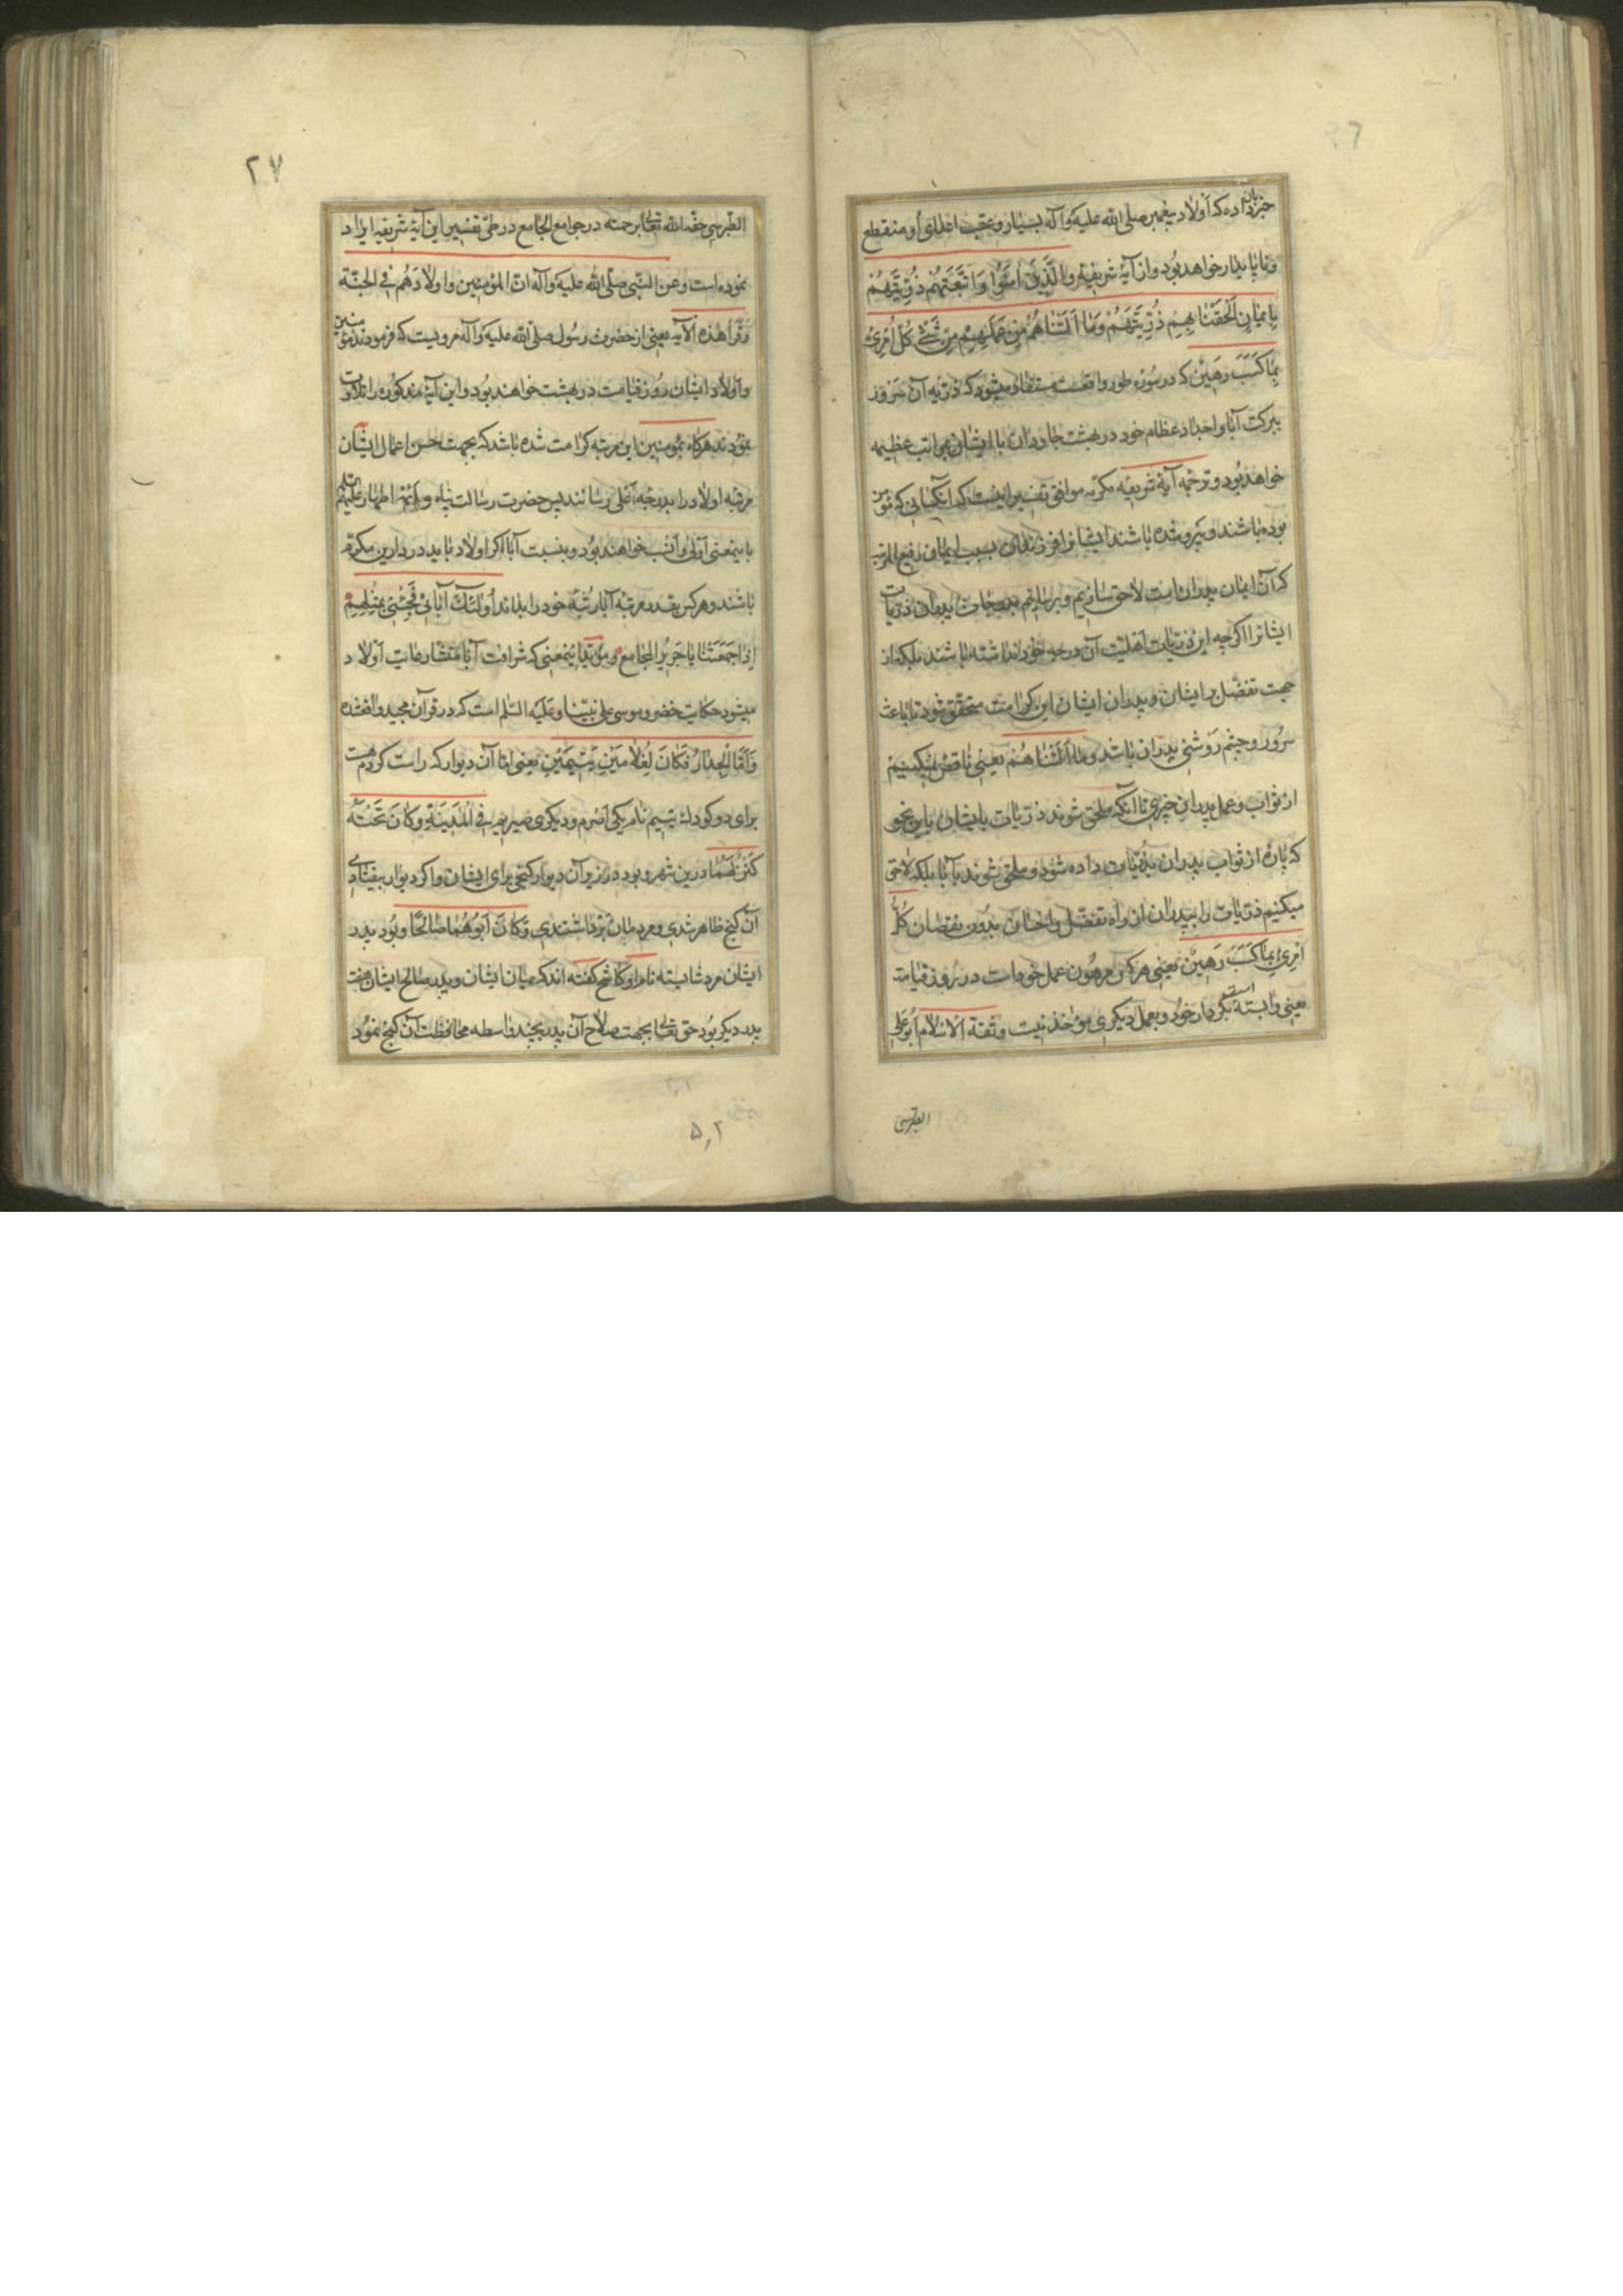 خبر داده که اولاد پیغمبر صلی الله علیه و آله بسیار و عقب اعدای او منقطع
و ناپایدار خواهد بود و از آیۀ شریفه وَالَّذِینَ اٰمَنُوا وَاتَّبَعَتْهُمْ ذُرِّیَّتُهُمْ
بِاِیمَانٍ اَلْحَقْنَا بِهِمْ ذُرِّیَّتَهُمْ وَمَا اَلَتْنَاهُمْ مِنْ عَمَلِهِمْ مِنْ شَیْءٍ کُلُّ امْرِئٍ
بِمَا کَسَبَ رَهِینٌ که در سورۀ طور واقعست مستفاد میشود که ذریه آن سرور
ببرکت آبا و اجداد عظام خود در بهشت جاودان با ایشان بمراتب عظیمه
خواهند بود و ترجمه آیۀ شریفه مکرمه موافق تفسیر اینست که آنکسانی که مؤمن
بوده باشند و پیرو شده باشند ایشانرا فرزندان بسبب ایمان رفیع المرتبه
که آن ایمان پدران است لاحق سازیم و برسانیم بدرجات پدران ذریات
ایشانرا اگرچه این ذریات اهلیت آن درجه خود نداشته باشند بلکه از
جهت تفضل بر ایشان و پدران ایشان این کرامت متحقق شود تا باعث
سرور و چشم روشنی پدران باشد و ما اَلَتْنَاهُمْ یعنی ناقص نمیکنیم
از ثواب و عمل پدران چیزی تا آنکه ملحق شوند ذریات بایشان باین نحو
که پارۀ از ثواب پدران بذریات داده شود و ملحق شوند بآبا بلکه لاحق
میکنیم ذریات را بپدران از راه تفضل و احسان بدون نقصان کُلُّ
امْرِئٍ بِمَا کَسَبَ رَهِینٌ یعنی هر کس مرهون عمل خود است در روز قیامت
یعنی وابسته بکردار خود است و بعمل دیگری مؤاخذ نیست و ثقة الاسلام ابو علی
الطبرسی
۲۷
الطبرسی حفه الله تعالی برحمته در جوامع الجامع در طی تفسیر این آیۀ شریفه ایراد
نموده است و عن النبی صلی الله علیه و آله انّ المؤمنین و اولادهم فی الجنّة
و قرأ هذه الآیه یعنی از حضرت رسول صلی الله علیه و آله مرویست که فرمودند مؤمنین
و اولاد ایشان روز قیامت در بهشت خواهند بود و این آیۀ مذکوره را تلاوت
نمودند هرگاه مؤمنین این مرتبه کرامت شده باشد که بجهت حسن اعمال ایشان
مرتبه اولاد را بدرجه اعلی رسانند پس حضرت رسالت پناه و ائمۀ اطهار علیهم السلام
باینمعنی اولی و انسب خواهند بود و بنسبت آبا اگر اولاد باید در دارین مکرم
باشند و هر کس بقدر مرتبه آبا رتبۀ خود را بداند اُولٰئِکَ آبَائِی فَجِئْنِی بِمِثْلِهِمْ
اِذَا جَمَعَتْنَا یَا جَرِیرُ الْمَجَامِعُ و مؤید اینمعنی که شرافت آبا منشأ رعایت اولاد
میشود حکایت خضر و موسی علی نبینا و علیه السلام است که در قرآن مجید واقعشده
وَاَمَّا الْجِدَارُ فَکَانَ لِغُلَامَیْنِ یَتِیمَیْنِ یعنی اما آن دیوار که راست کردم هست
برای دو کودک یتیم نام یکی اصرم و دیگری صریم فِی الْمَدِینَةِ وَکَانَ تَحْتَهُ
کَنْزٌ لَهُمَا درین شهر و بود در زیر آن دیوار گنجی برای ایشان و اگر دیوار بیفتادی
آن گنج ظاهر شدی و مردمان برداشتندی وَکَانَ اَبُوهُمَا صَالِحًا و بود پدر
ایشان مرد شایسته نام او کاشح گفته اند که میان ایشان و پدر صالح ایشان هفت
پدر دیگر بود حق تعالی بجهت صلاح آن پدر بچند واسطه محافظت آن گنج نمود
۵٫۲